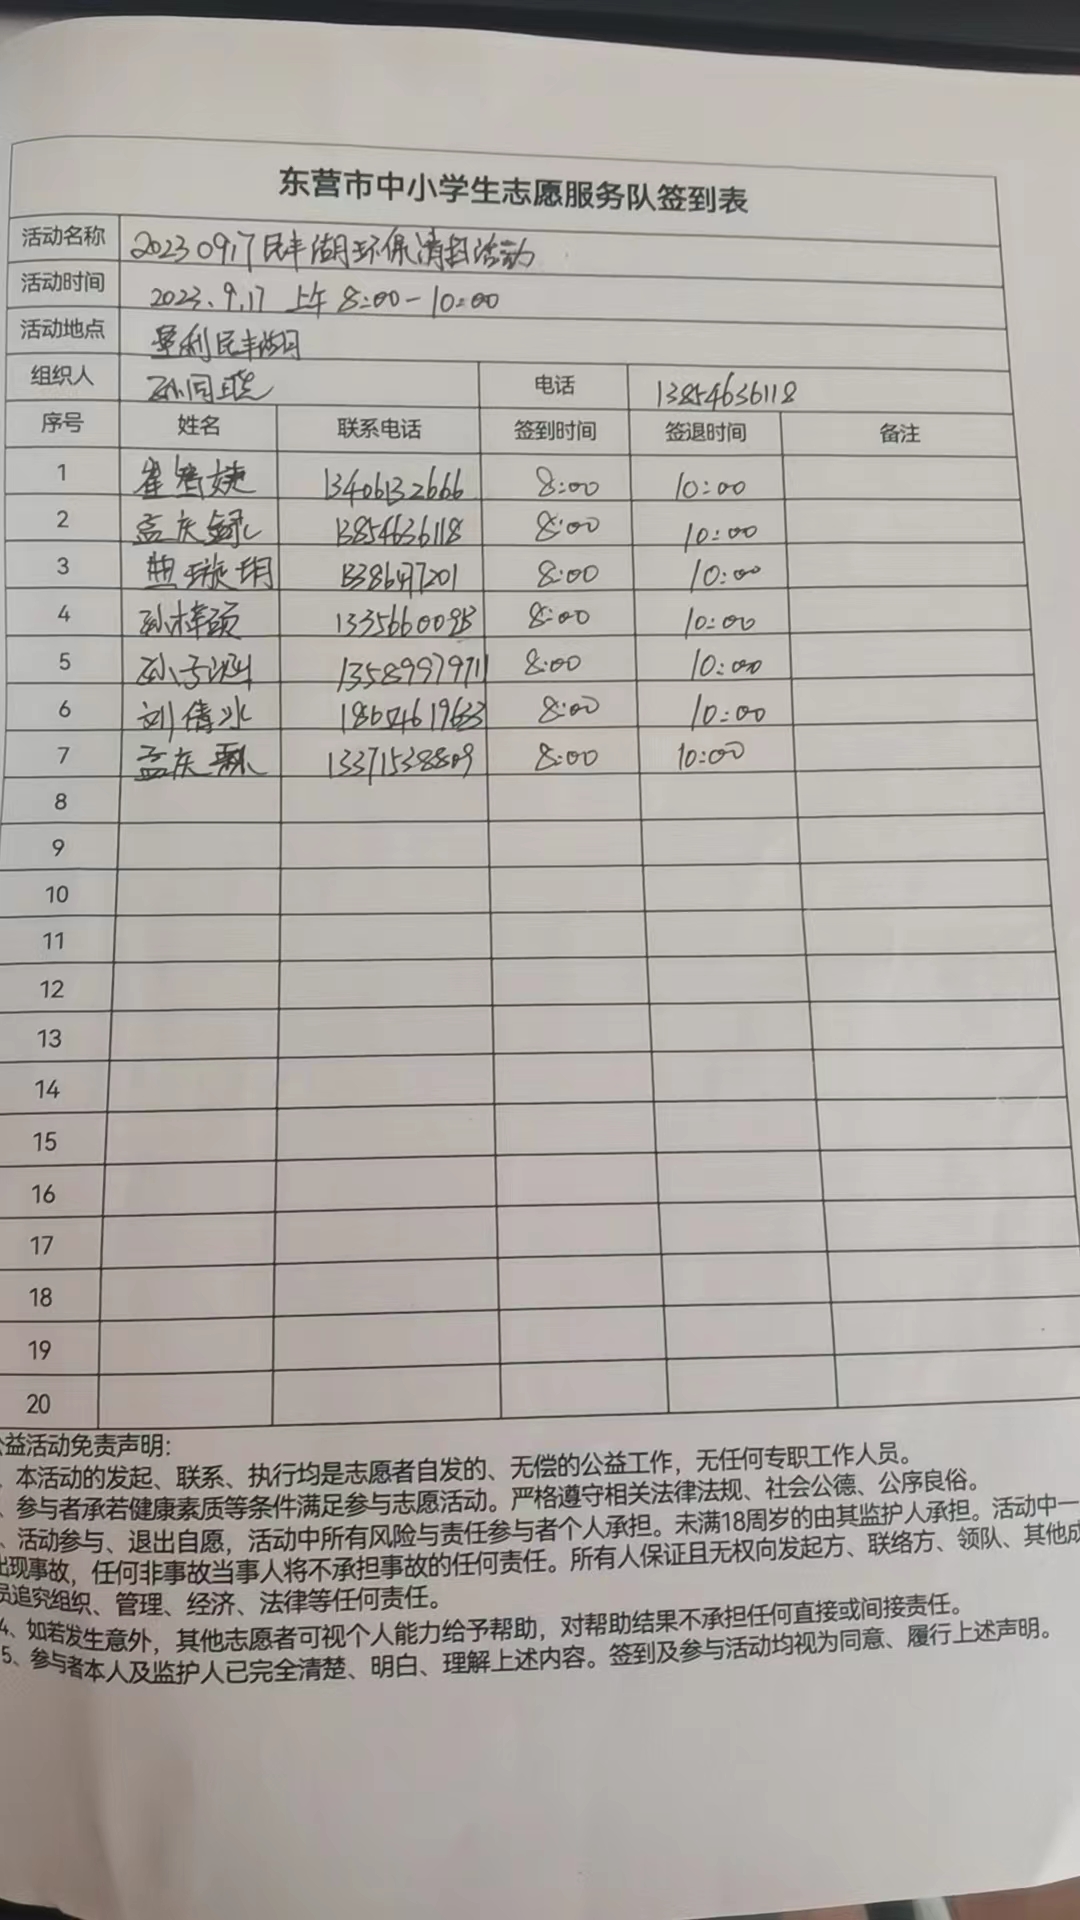 东营市中小学生志愿服务队签到表
活动名称 20230917民丰湖环保清扫活动
活动时间 2023.9.17 上午 8:00-10:00
活动地点 垦利民丰湖
组织人 电话 13854636118
序号 姓名 联系电话 签到时间 签退时间 备注
1 13406132666 8:00 10:00
2 孟庆 13854636118 8:00 10:00
3 8:00 10:00
4 孙梓硕 8:00 10:00
5 孙子 13589979711 8:00 10:00
6 刘倩冰 8:00 10:00
7 孟庆 13371538809 8:00 10:00
8
9
10
11
12
13
14
15
16
17
18
19
20
益活动免责声明：
、本活动的发起、联系、执行均是志愿者自发的、无偿的公益工作，无任何专职工作人员。
、参与者承若健康素质等条件满足参与志愿活动。严格遵守相关法律法规、社会公德、公序良俗。
、活动参与、退出自愿，活动中所有风险与责任参与者个人承担。未满18周岁的由其监护人承担。活动中一
出现事故，任何非事故当事人将不承担事故的任何责任。所有人保证且无权向发起方、联络方、领队、其他成
员追究组织、管理、经济、法律等任何责任。
4、如若发生意外，其他志愿者可视个人能力给予帮助，对帮助结果不承担任何直接或间接责任。
5、参与者本人及监护人已完全清楚、明白、理解上述内容。签到及参与活动均视为同意、履行上述声明。